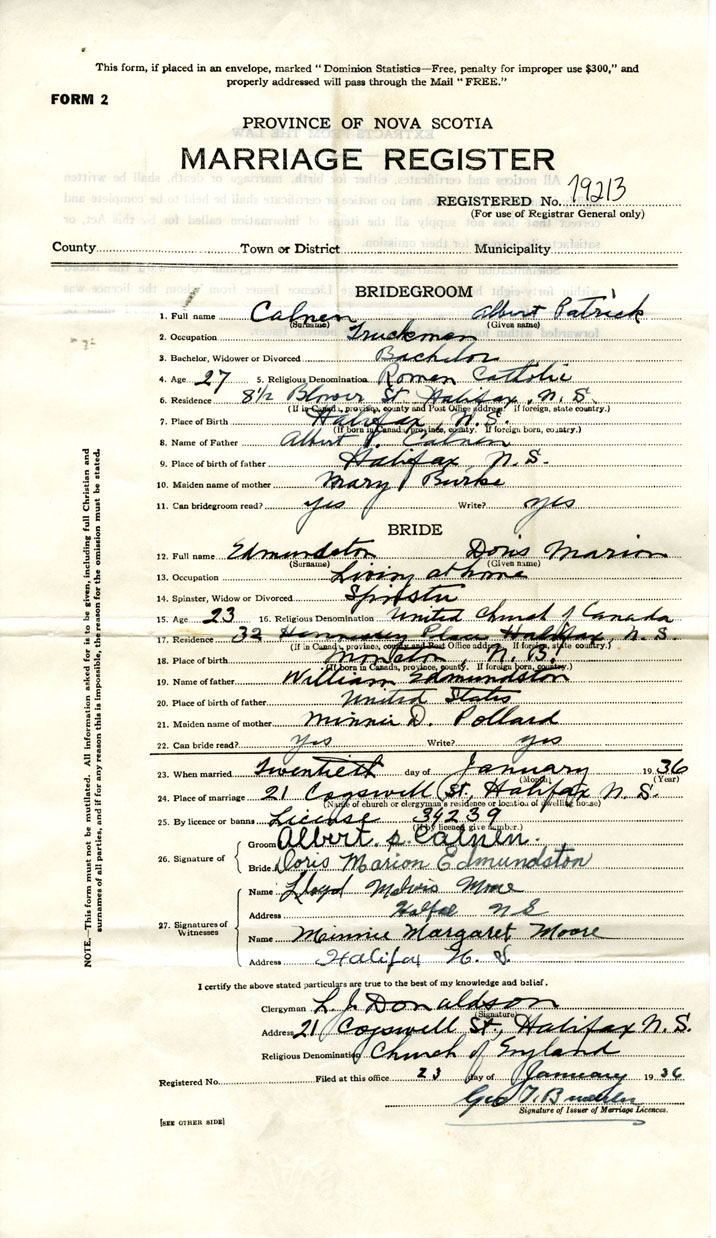 This form, if placed in an envelope, marked "Dominion Statistics—Free, penalty for improper use $300," and
properly addressed will pass through the Mail "FREE."
FORM 2
PROVINCE OF NOVA SCOTIA
MARRIAGE REGISTER
REGISTERED No. 19213
(For use of Registrar General only)
County Town or District Municipality
BRIDEGROOM
1. Full name Calnen Albert Patrick
(Surname) (Given name)
2. Occupation Truckman
3. Bachelor, Widower or Divorced Bachelor
4. Age 27 5. Religious Denomination Roman Catholic
6. Residence 8½ Blower St Halifax, N. S.
(If in Canada, province, county and Post Office address. If foreign, state country.)
7. Place of Birth Halifax, N. S.
(If born in Canada, province, county. If foreign born, country.)
8. Name of Father Albert P. Calnen
9. Place of birth of father Halifax, N. S.
10. Maiden name of mother Mary Burke
11. Can bridegroom read? yes Write? yes
BRIDE
12. Full name Edmundston Doris Marion
(Surname) (Given name)
13. Occupation Living at home
14. Spinster, Widow or Divorced Spinster
15. Age 23 16. Religious Denomination United Church of Canada
17. Residence 32 Hennessey Place Halifax, N. S.
(If in Canada, province, county and Post Office address. If foreign, state country.)
18. Place of birth Moncton, N. B.
(If born in Canada, province, county. If foreign born, country.)
19. Name of father William Edmundston
20. Place of birth of father United States
21. Maiden name of mother Minnie D. Pollard
22. Can bride read? yes Write? yes
23. When married Twentieth day of January 1936
(Month) (Year)
24. Place of marriage 21 Cogswell St, Halifax N. S.
(Name of church or clergyman's residence or location of dwelling house)
25. By licence or banns License 34239
(If by licence, give number.)
26. Signature of Groom Albert. P. Calnen.
Bride Doris Marion Edmundston
27. Signatures of Witnesses
Name Lloyd Moore
Address N S
Name Minnie Margaret Moore
Address Halifax N. S.
I certify the above stated particulars are true to the best of my knowledge and belief.
Clergyman L. J. Donaldson
(Signature)
Address 21 Cogswell St, Halifax N. S.
Religious Denomination Church of England
Registered No. Filed at this office 23 day of January 1936
Geo
Signature of Issuer of Marriage Licences.
[SEE OTHER SIDE]
NOTE.—This form must not be mutilated. All information asked for is to be given, including full Christian and
surnames of all parties, and if for any reason this is impossible, the reason for the omission must be stated.